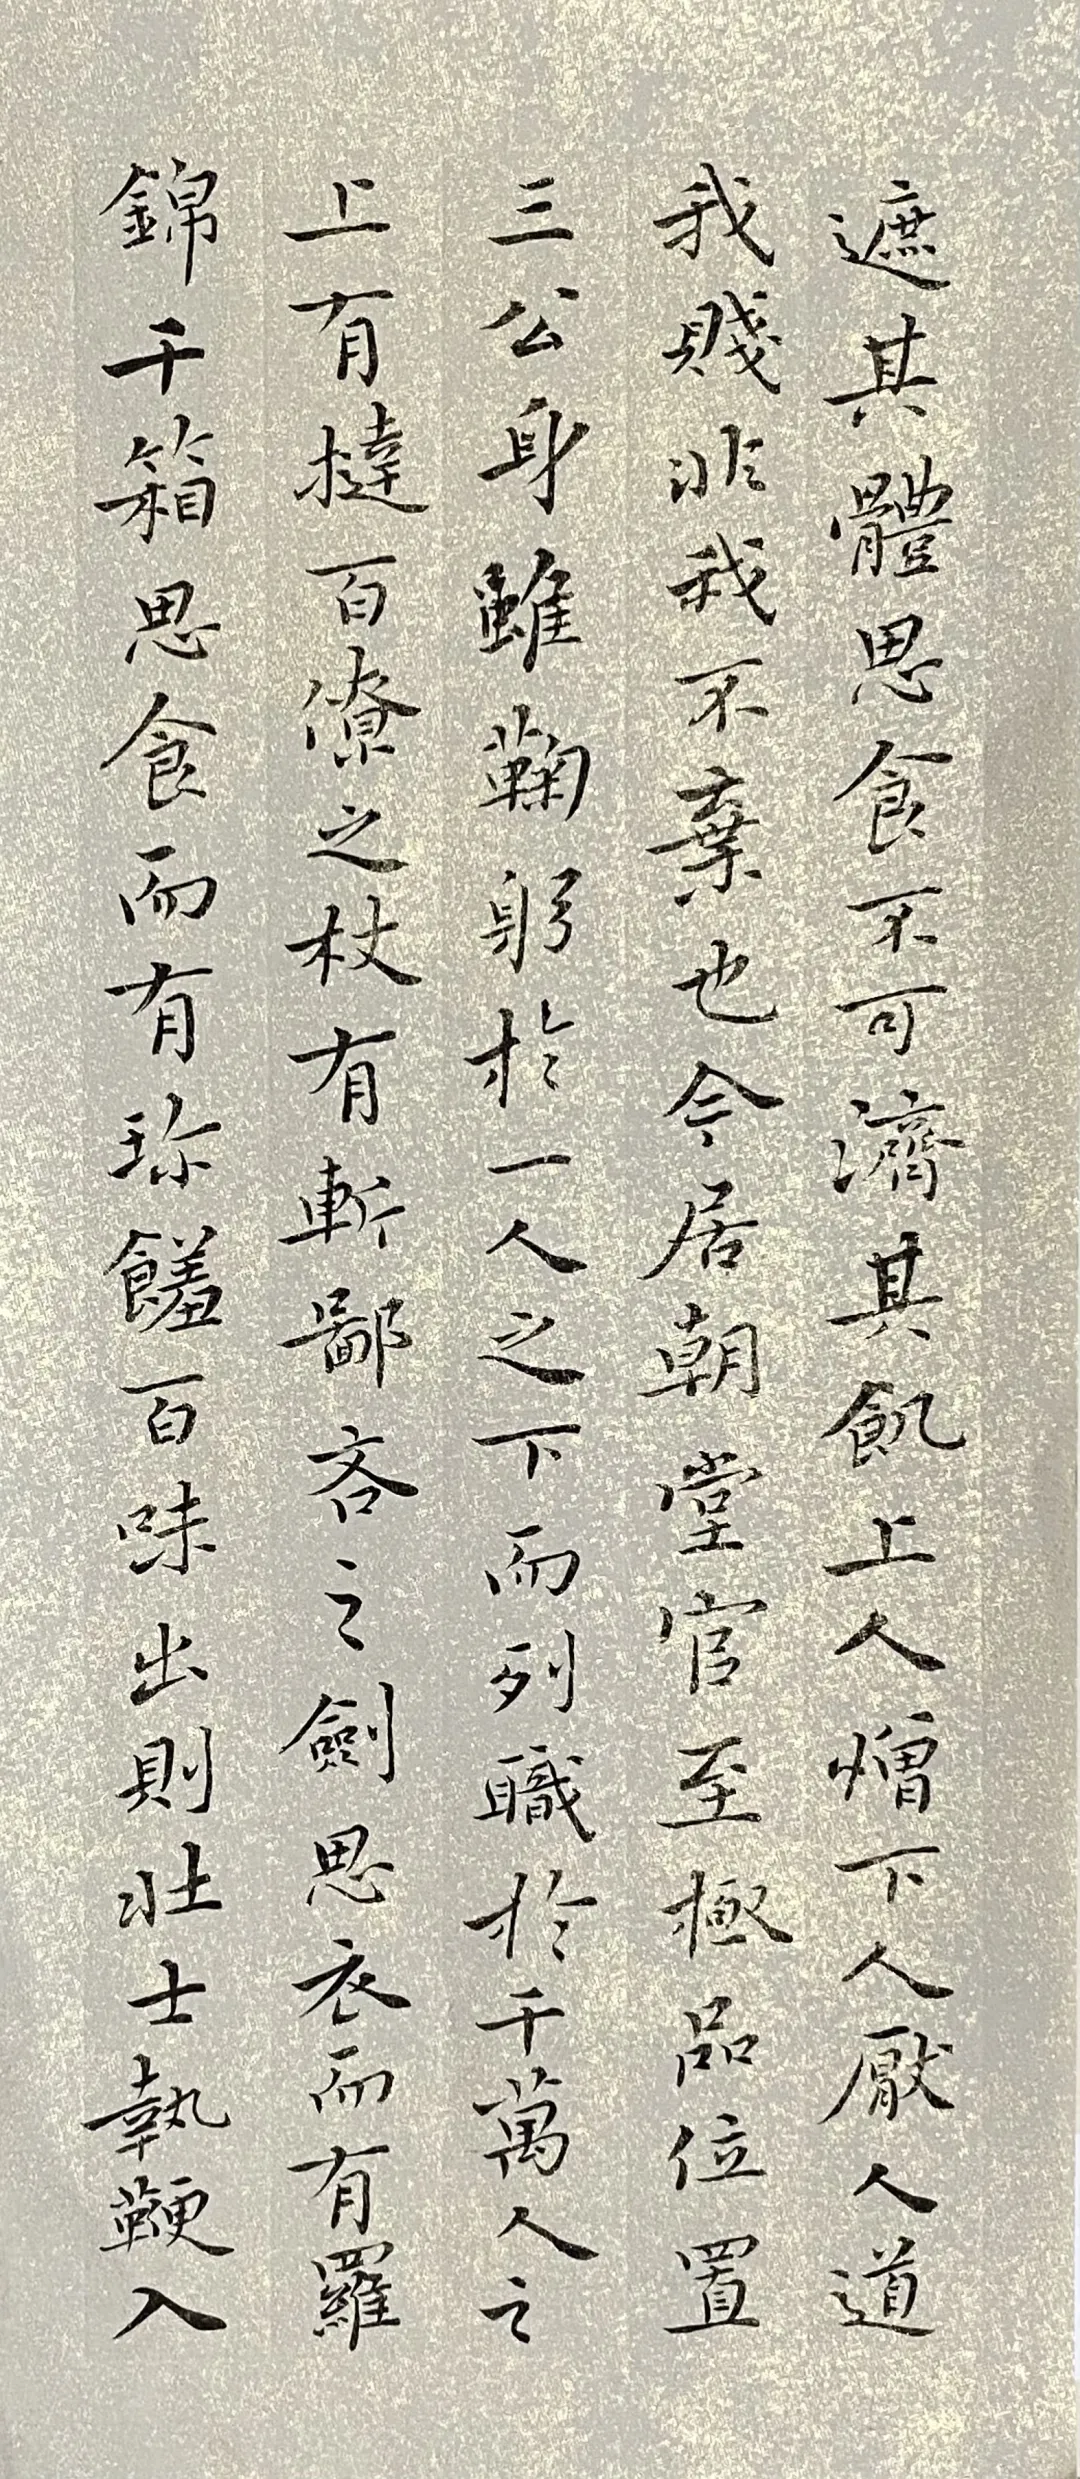 遮其體思食不可濟其飢上人憎下人厭人道
我賤非我不棄也今居朝堂官至極品位置
三公身雖鞠躬於一人之下而列職於千萬人之
上有撻百僚之杖有斬鄙吝之劍思衣而有羅
錦千箱思食而有珍饈百味出則壯士執鞭入